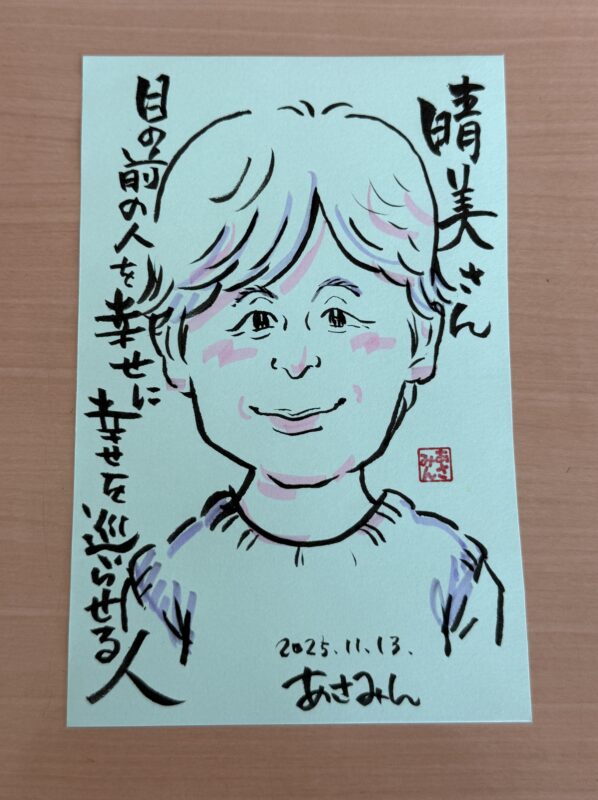 晴美さん
目の前の人を幸せに
幸せを巡らせる人
あさ
みん
2025.11.13.
あさみん